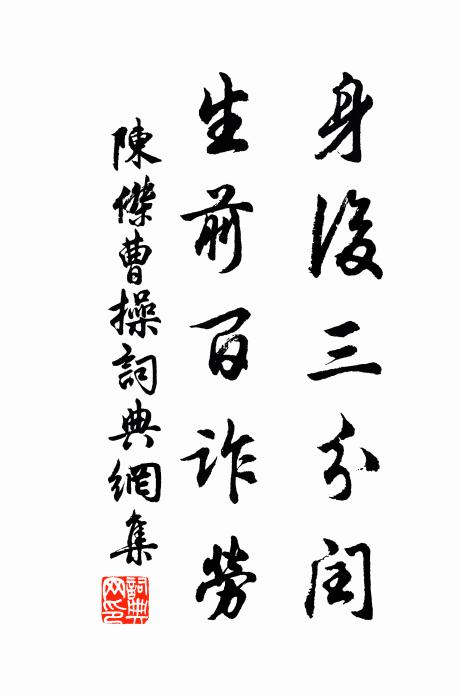 身後三分閏
生前百詐勞
陳傑曹操詞典網集
詞典網印